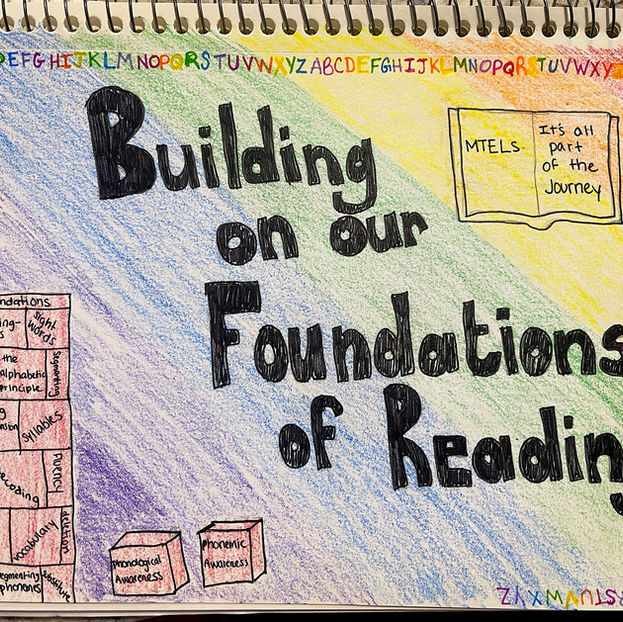 DEFGHIJKLMNOPQRSTUVWXYZABCDEFGHIJKLMNOPQRSTUVWXY
Building
on our
Foundations
of Readin
MTELs
It's all
part
of the
Journey
ndations
ing-
s
sight
words
the
alphabetic
principle
Segmenting
g
nsion
Syllables
ecoding
Fluency
vocabulary
deletion
egmenting
phonones
substitute
phonological
Awareness
phonemic
Awareness
RSTUVWXYZ